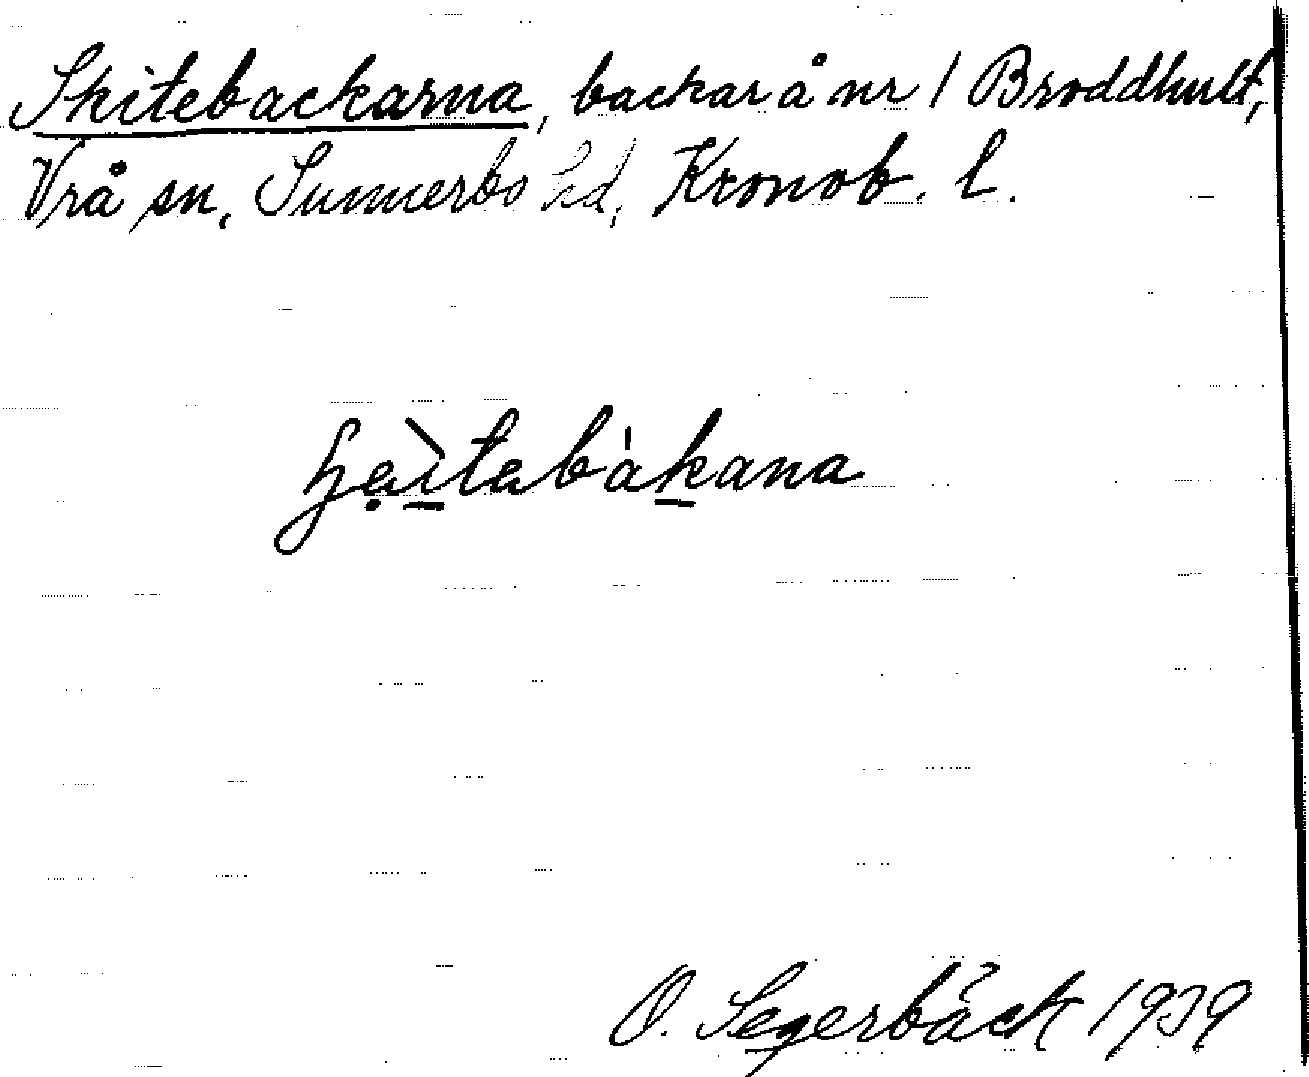 Skitebackarna, backar å nr 1 Broddhult,
Vrå sn, Sunnerbo hd, Kronob. l.
ɧẹi̠tabak̠ana
O. Segerbäck 1939